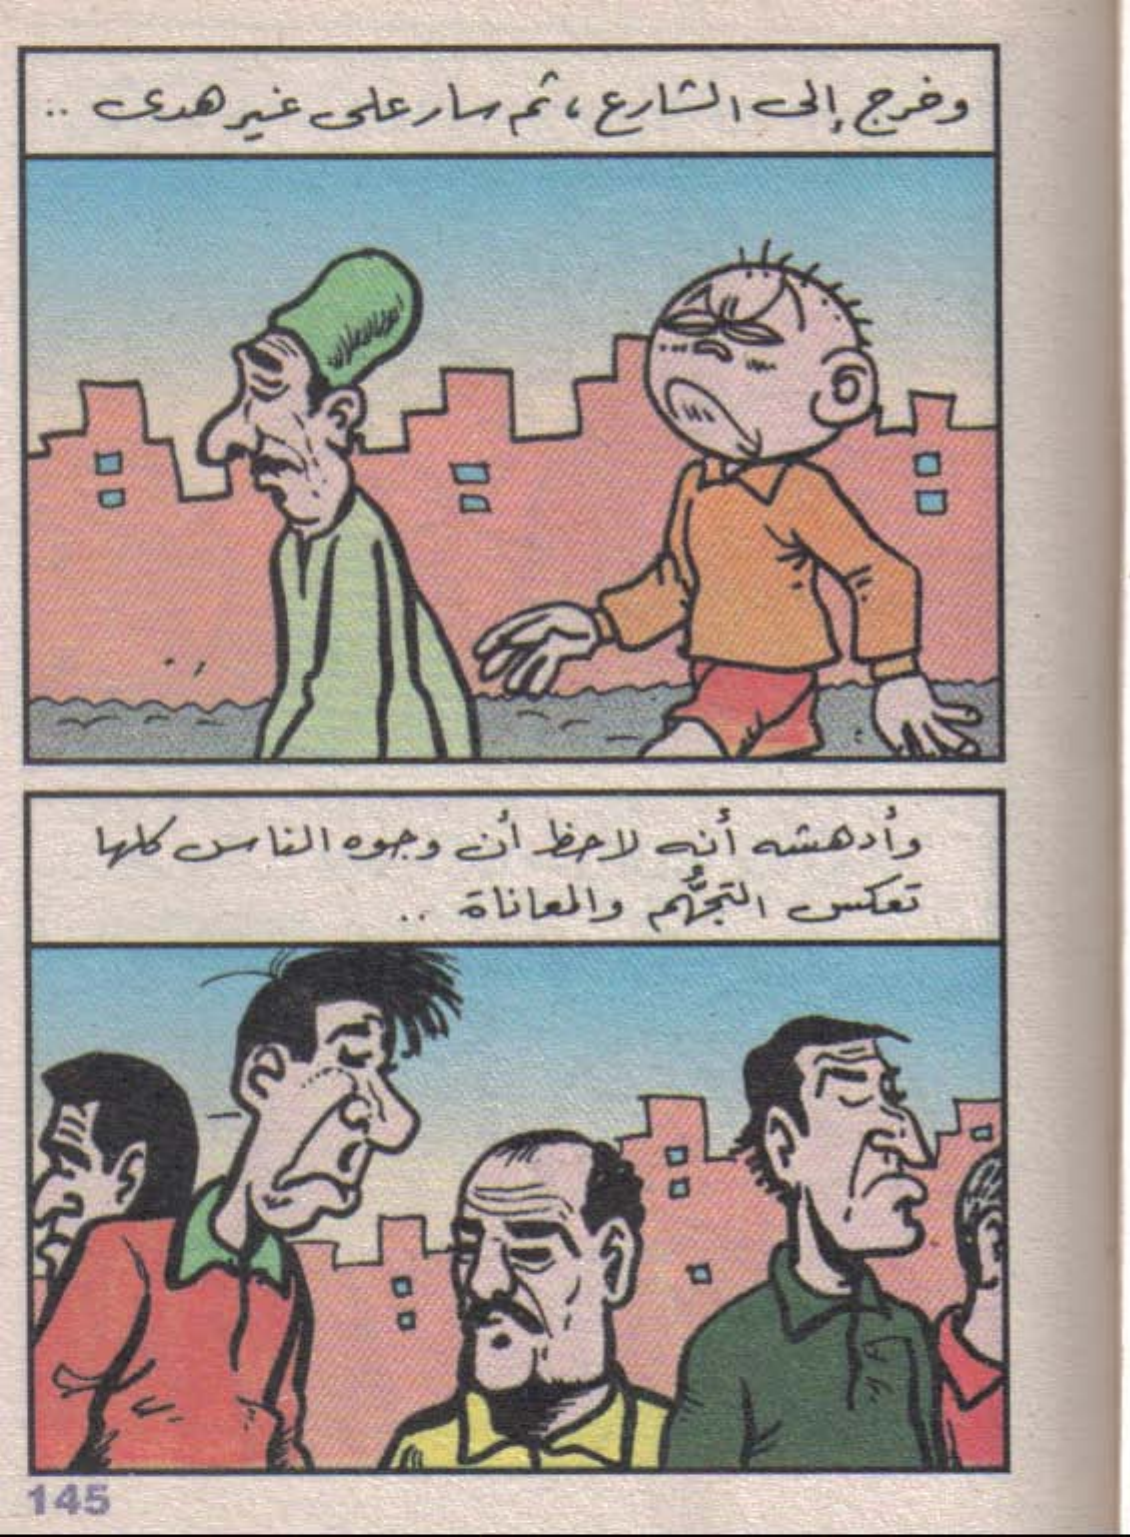 وخرج إلى الشارع ، ثم سار على غير هدى ..
وأدهشه أنه لاحظ أن وجوه الناس كلها
تعكس التجهُّم والمعاناة ..
145